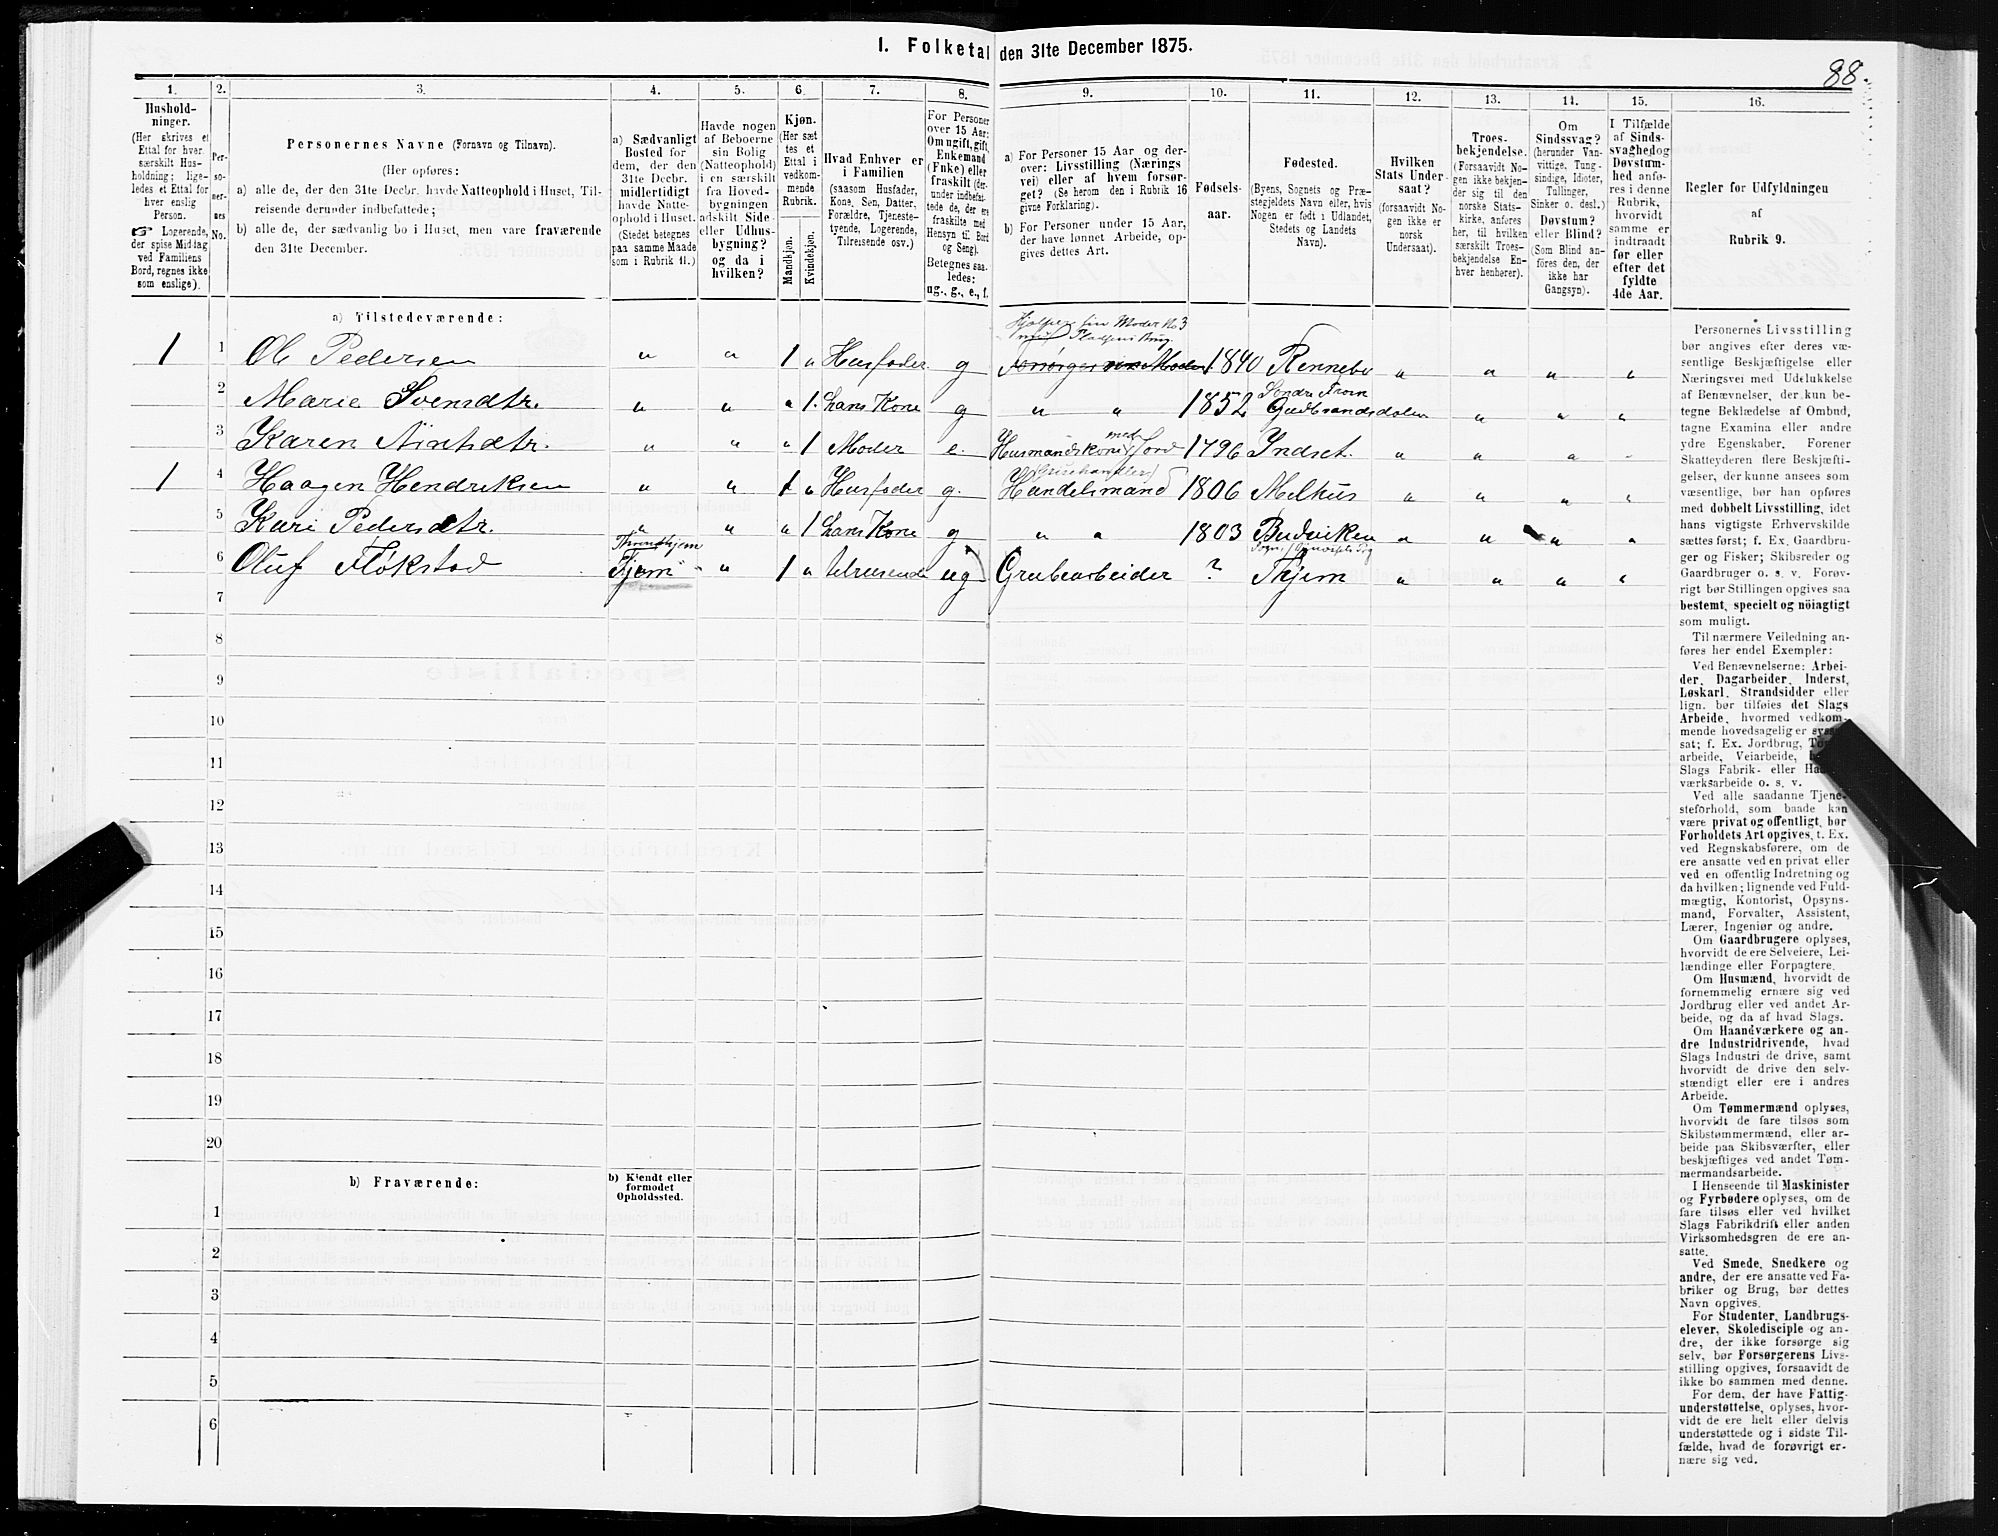 1. Folketal den 31te December 1875.
88.
1. 2. 3. 4. 5. 6. 7. 8. 9. 10. 11. 12. 13. 14. 15. 16.
Hushold-
ninger.
(Her skrives et
Ettal for hver
særskilt Hus-
holdning; lige-
ledes et Ettal for
hver enslig
Person.
☞ Logerende,
der spise Middag
ved Familiens
Bord, regnes ikke
som enslige).
Per-
so-
ner-
nes
No.
Personernes Navne (Fornavn og Tilnavn).
(Her opføres:
a) alle de, der den 31te Decbr. havde Natteophold i Huset, Til-
reisende derunder indbefattede;
b) alle de, der sædvanlig bo i Huset, men vare fraværende
den 31te December.
a) Sædvanligt
Bosted for
dem, der den
31te Decbr.
midlertidigt
havde Natte-
ophold i Huset.
(Stedet betegnes
paa samme Maade
som i Rubrik 11.)
Havde nogen
af Beboerne
sin Bolig
(Natteophold)
i en særskilt
fra Hoved-
bygningen
adskilt Side-
eller Udhus-
bygning?
og da i
hvilken?
Kjøn.
(Her sæt-
tes et
Ettal i
vedkom-
mende
Rubrik.
Mandkjøn.
Kvindekjøn.
Hvad Enhver er
i Familien
(saasom Husfader,
Kone, Søn, Datter,
Forældre, Tjeneste-
tyende, Logerende,
Tilreisende osv.)
For Personer
over 15 Aar:
Om ugift, gift,
Enkemand
(Enke) eller
fraskilt (der-
under indbefat-
tede de, der ere
fraskilte med
Hensyn til Bord
og Seng).
Betegnes saa-
ledes:
ug., g., e., f.
a) For Personer 15 Aar og der-
over: Livsstilling (Nærings-
vei) eller af hvem forsør-
get? (Se herom den i Rubrik 16
givne Forklaring).
b) For Personer under 15 Aar,
der have lønnet Arbeide, op-
gives dettes Art.
Fødsels-
aar.
Fødested.
(Byens, Sognets og Præ-
stegjeldets Navn eller, hvis
Nogen er født i Udlandet,
Stedets og Landets
Navn).
Hvilken
Stats Under-
saat?
(forsaavidt No-
gen ikke er
norsk
Undersaat).
Troes-
bekjendelse.
(Forsaavidt No-
gen ikke bekjen-
der sig til den
norske Stats-
kirke, anføres
her, til hvilken
særskilt Troes-
bekjendelse En-
hver henhører).
Om
Sindssvag?
(herunder Van-
vittige, Tung-
sindige, Idioter,
Tullinger,
Sinker o. desl.)
Døvstum?
eller Blind?
(Som Blind an-
føres den, der
ikke har
Gangsyn).
I Tilfælde
af Sinds-
svaghed og
Døvstum-
hed anfø-
res i denne
Rubrik,
hvorvidt
samme er
indtraadt
før eller
efter det
fyldte
4de Aar.
Regler for Udfyldningen
af
Rubrik 9.
a) Tilstedeværende:
Hjælper sin Moder No 3
Pladsens Brug.
1 1 Ole Pedersen " " 1 " Husfader g Forsørges sin Moder 1840 Rennebo " " " "
Søndre Fron
2 Marie Svensdtr. " " " 1. hans Kone g " " 1852 Gudbrandsdalen " " "
med
3 Karen " " " 1 Moder e. Husmandskone Jord 1796 Indset. " " " "
1 4 Haagen Hendriksen " " 1 " Husfader g. Handelsmand 1806 Melhus " " " "
5 Kari Pedersdtr. " " " 1 hans Kone g " " 1803 Budviken " " " "
Throndhjem
6 Oluf Fløkstad Tjem " " 1 " tilreisende ug Grubearbeider ? Thjem " " " "
7
8
9
10
11
12
13
14
15
16
17
18
19
20
b) Fraværende:
b) Kjendt eller
formodet
Opholdssted.
1
2
3
4
5
6
Personernes Livsstilling
bør angives efter deres væ-
sentlige Beskjæftigelse eller
Næringsvei med Udelukkelse
af Benævnelser, der kun be-
tegne Beklædelse af Ombud,
tagne Examina eller andre
ydre Egenskaber. Forener
Skatteyderen flere Beskjæfti-
gelser, der kunne ansees som
væsentlige, bør han opføres
med dobbelt Livsstilling, idet
hans vigtigste Erhvervskilde
sættes først; f. Ex. Gaardbru-
ger og Fisker; Skibsreder og
Gaardbruger o. s. v. Forøv-
rigt bør Stillingen opgives saa
bestemt, specielt og nöiagtigt
som muligt.
Til nærmere Veiledning an-
føres her endel Exempler:
Ved Benævnelserne: Arbei-
der, Dagarbeider, Inderst,
Løskarl, Strandsidder eller
lign. bør tilføies det Slags
Arbeide, hvormed vedkom-
mende hovedsagelig er syssel-
sat; f. Ex. Jordbrug,
arbeide, Veiarbeide,
Slags Fabrik- eller
værksarbeide o. s. v.
Ved alle saadanne Tjene-
steforhold, som baade kan
være privat og offentligt, bør
Forholdets Art opgives, t. Ex.
ved Regnskabsførere, om de
ere ansatte ved en privat eller
ved en offentlig Indretning og
da hvilken; lignende ved Fuld-
mægtig, Kontorist, Opsyns-
mand, Forvalter, Assistent,
Lærer, Ingeniør og andre.
Om Gaardbrugere oplyses,
hvorvidt de ere Selveiere, Lei-
lændinge eller Forpagtere.
Om Husmænd, hvorvidt de
fornemmelig ernære sig ved
Jordbrug eller ved andet Ar-
beide, og da af hvad Slags.
Om Haandværkere og an-
dre Industridrivende, hvad
Slags Industri de drive, samt
hvorvidt de drive den selv-
stændigt eller ere i andres
Arbeide.
Om Tømmermænd oplyses,
hvorvidt de fare tilsøs som
Skibstømmermænd, eller ar-
beide paa Skibsværfter, eller
beskjæftiges ved andet Tøm-
mermandsarbeide.
I Henseende til Maskinister
og Fyrbødere oplyses, om de
fare tilsøs eller ved hvilket
Slags Fabrikdrift eller anden
Virksomhedsgren de ere an-
satte.
Ved Smede, Snedkere og
andre, der ere ansatte ved Fa-
briker og Brug, bør dettes
Navn opgives.
For Studenter, Landbrugs-
elever, Skoledisciple og an-
dre, der ikke forsørge sig
selv, bør Forsørgerens Livs-
stilling opgives, forsaavidt de
ikke bo sammen med denne.
For dem, der have Fattig-
understøttelse, oplyses, hvor-
vidt de ere helt eller delvis
understøttede og i sidste Til-
fælde, hvad de forøvrigt er-
nære sig ved.